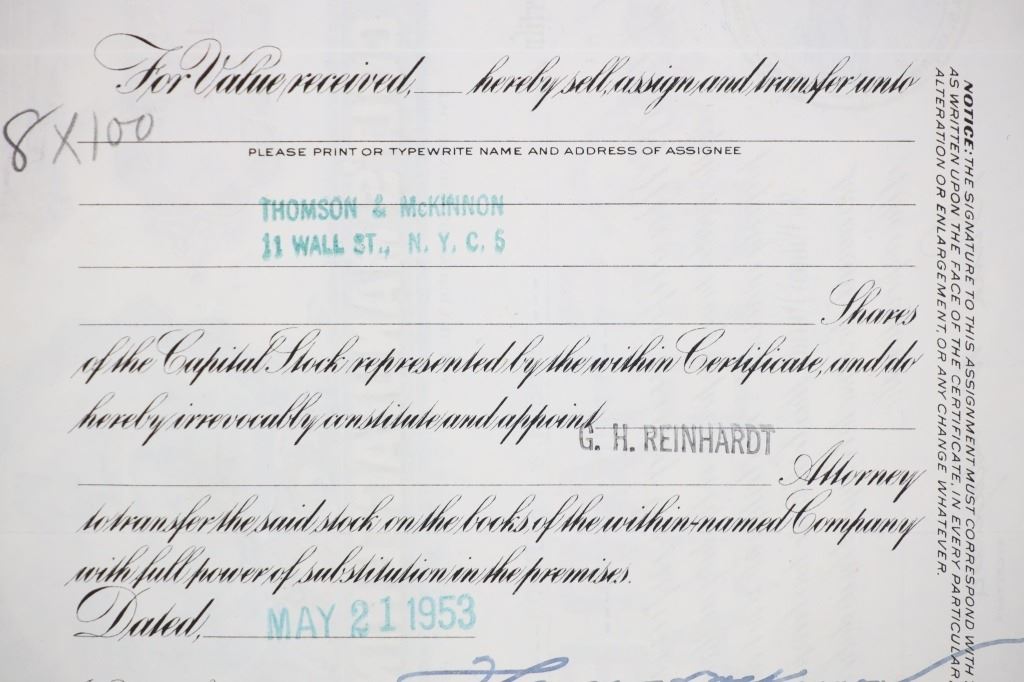 For Value received, ___ hereby sell, assign and transfer unto
8 X 100
PLEASE PRINT OR TYPEWRITE NAME AND ADDRESS OF ASSIGNEE
THOMSON & McKINNON
11 WALL ST., N. Y. C. 5
Shares
of the Capital Stock represented by the within Certificate, and do
hereby irrevocably constitute and appoint
G. H. REINHARDT
Attorney
to transfer the said stock on the books of the within-named Company
with full power of substitution in the premises.
Dated, MAY 21 1953
NOTICE: THE SIGNATURE TO THIS ASSIGNMENT MUST CORRESPOND WITH
AS WRITTEN UPON THE FACE OF THE CERTIFICATE, IN EVERY PARTICULAR,
ALTERATION OR ENLARGEMENT, OR ANY CHANGE WHATEVER.